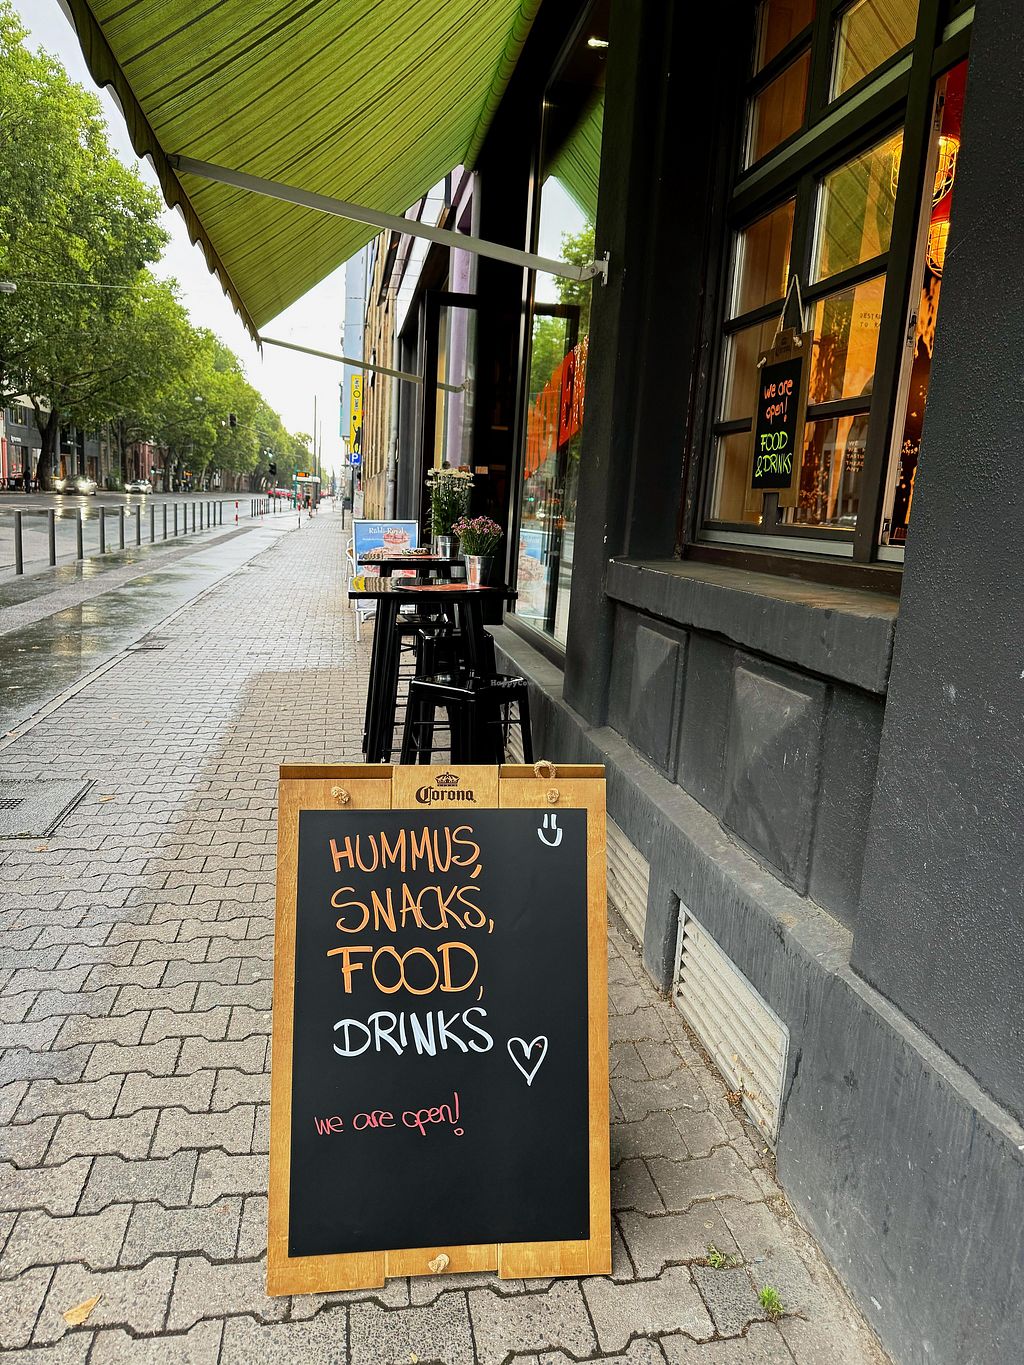 we are
open!
FOOD
& DRINKS
HappyCow
Corona
HUMMUS,
SNACKS,
FOOD,
DRINKS
we are open!